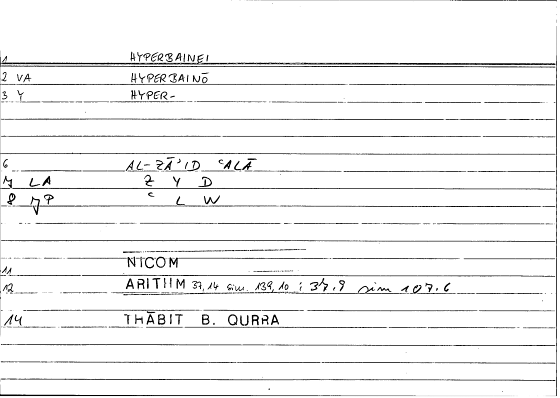 1 HYPERBAINEI
2 VA HYPERBAINŌ
3 Y HYPER-
6 AL-ZĀʾID ʿALĀ
7 LA Z Y D
8 7P ʿ L W
11 NICOM
12 ARITIIM 37,14 sim. 139,10 ; 37.9 sim 107.6
14 THĀBIT B. QURRA